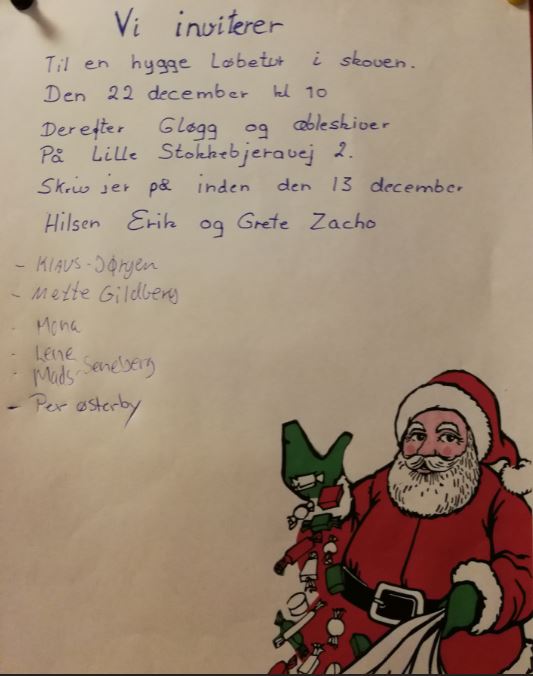 Vi inviterer
Til en hygge Løbetur i skoven.
Den 22 december kl 10
Derefter Gløgg og æbleskiver
På Lille Stokkebjeravej 2.
Skriv jer på inden den 13 december
Hilsen Erik og Grete Zacho
- Klaus-Jørgen
- Mette Gildberg
- Mona
- Lene
- Mads-Seneberg
- Per østerby